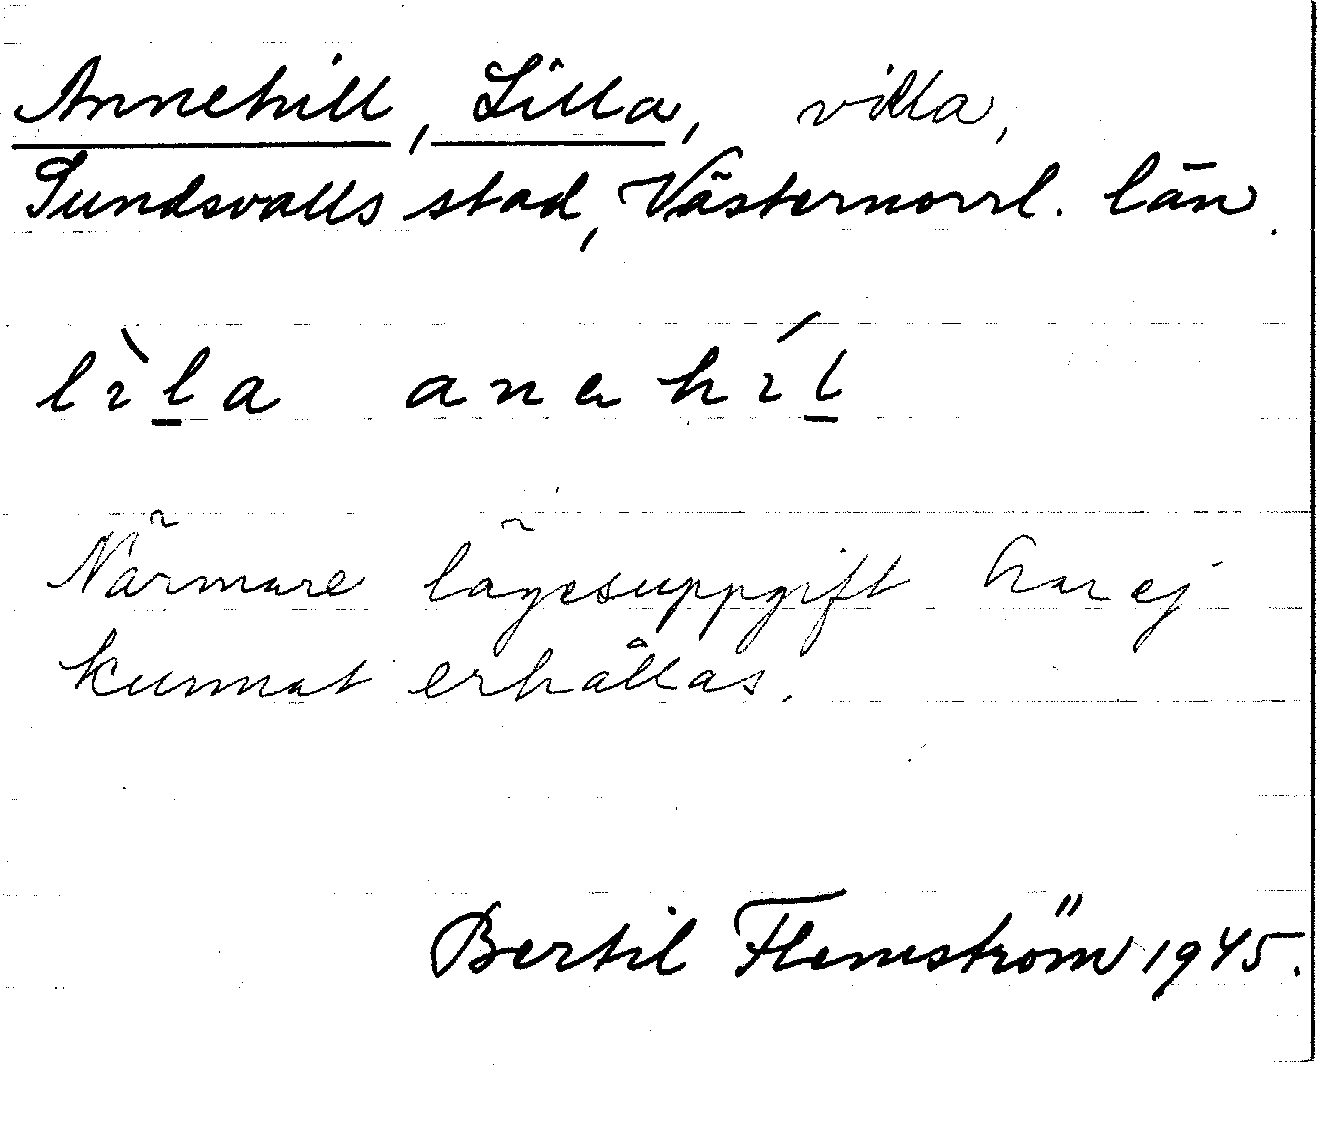 Annehill, Lilla, villa,
Sundsvalls stad, Västernorrl. län.
lìl̲a anahíl̲
Närmare lägesuppgift har ej
kunnat erhållas.
Bertil Flemström 1945.